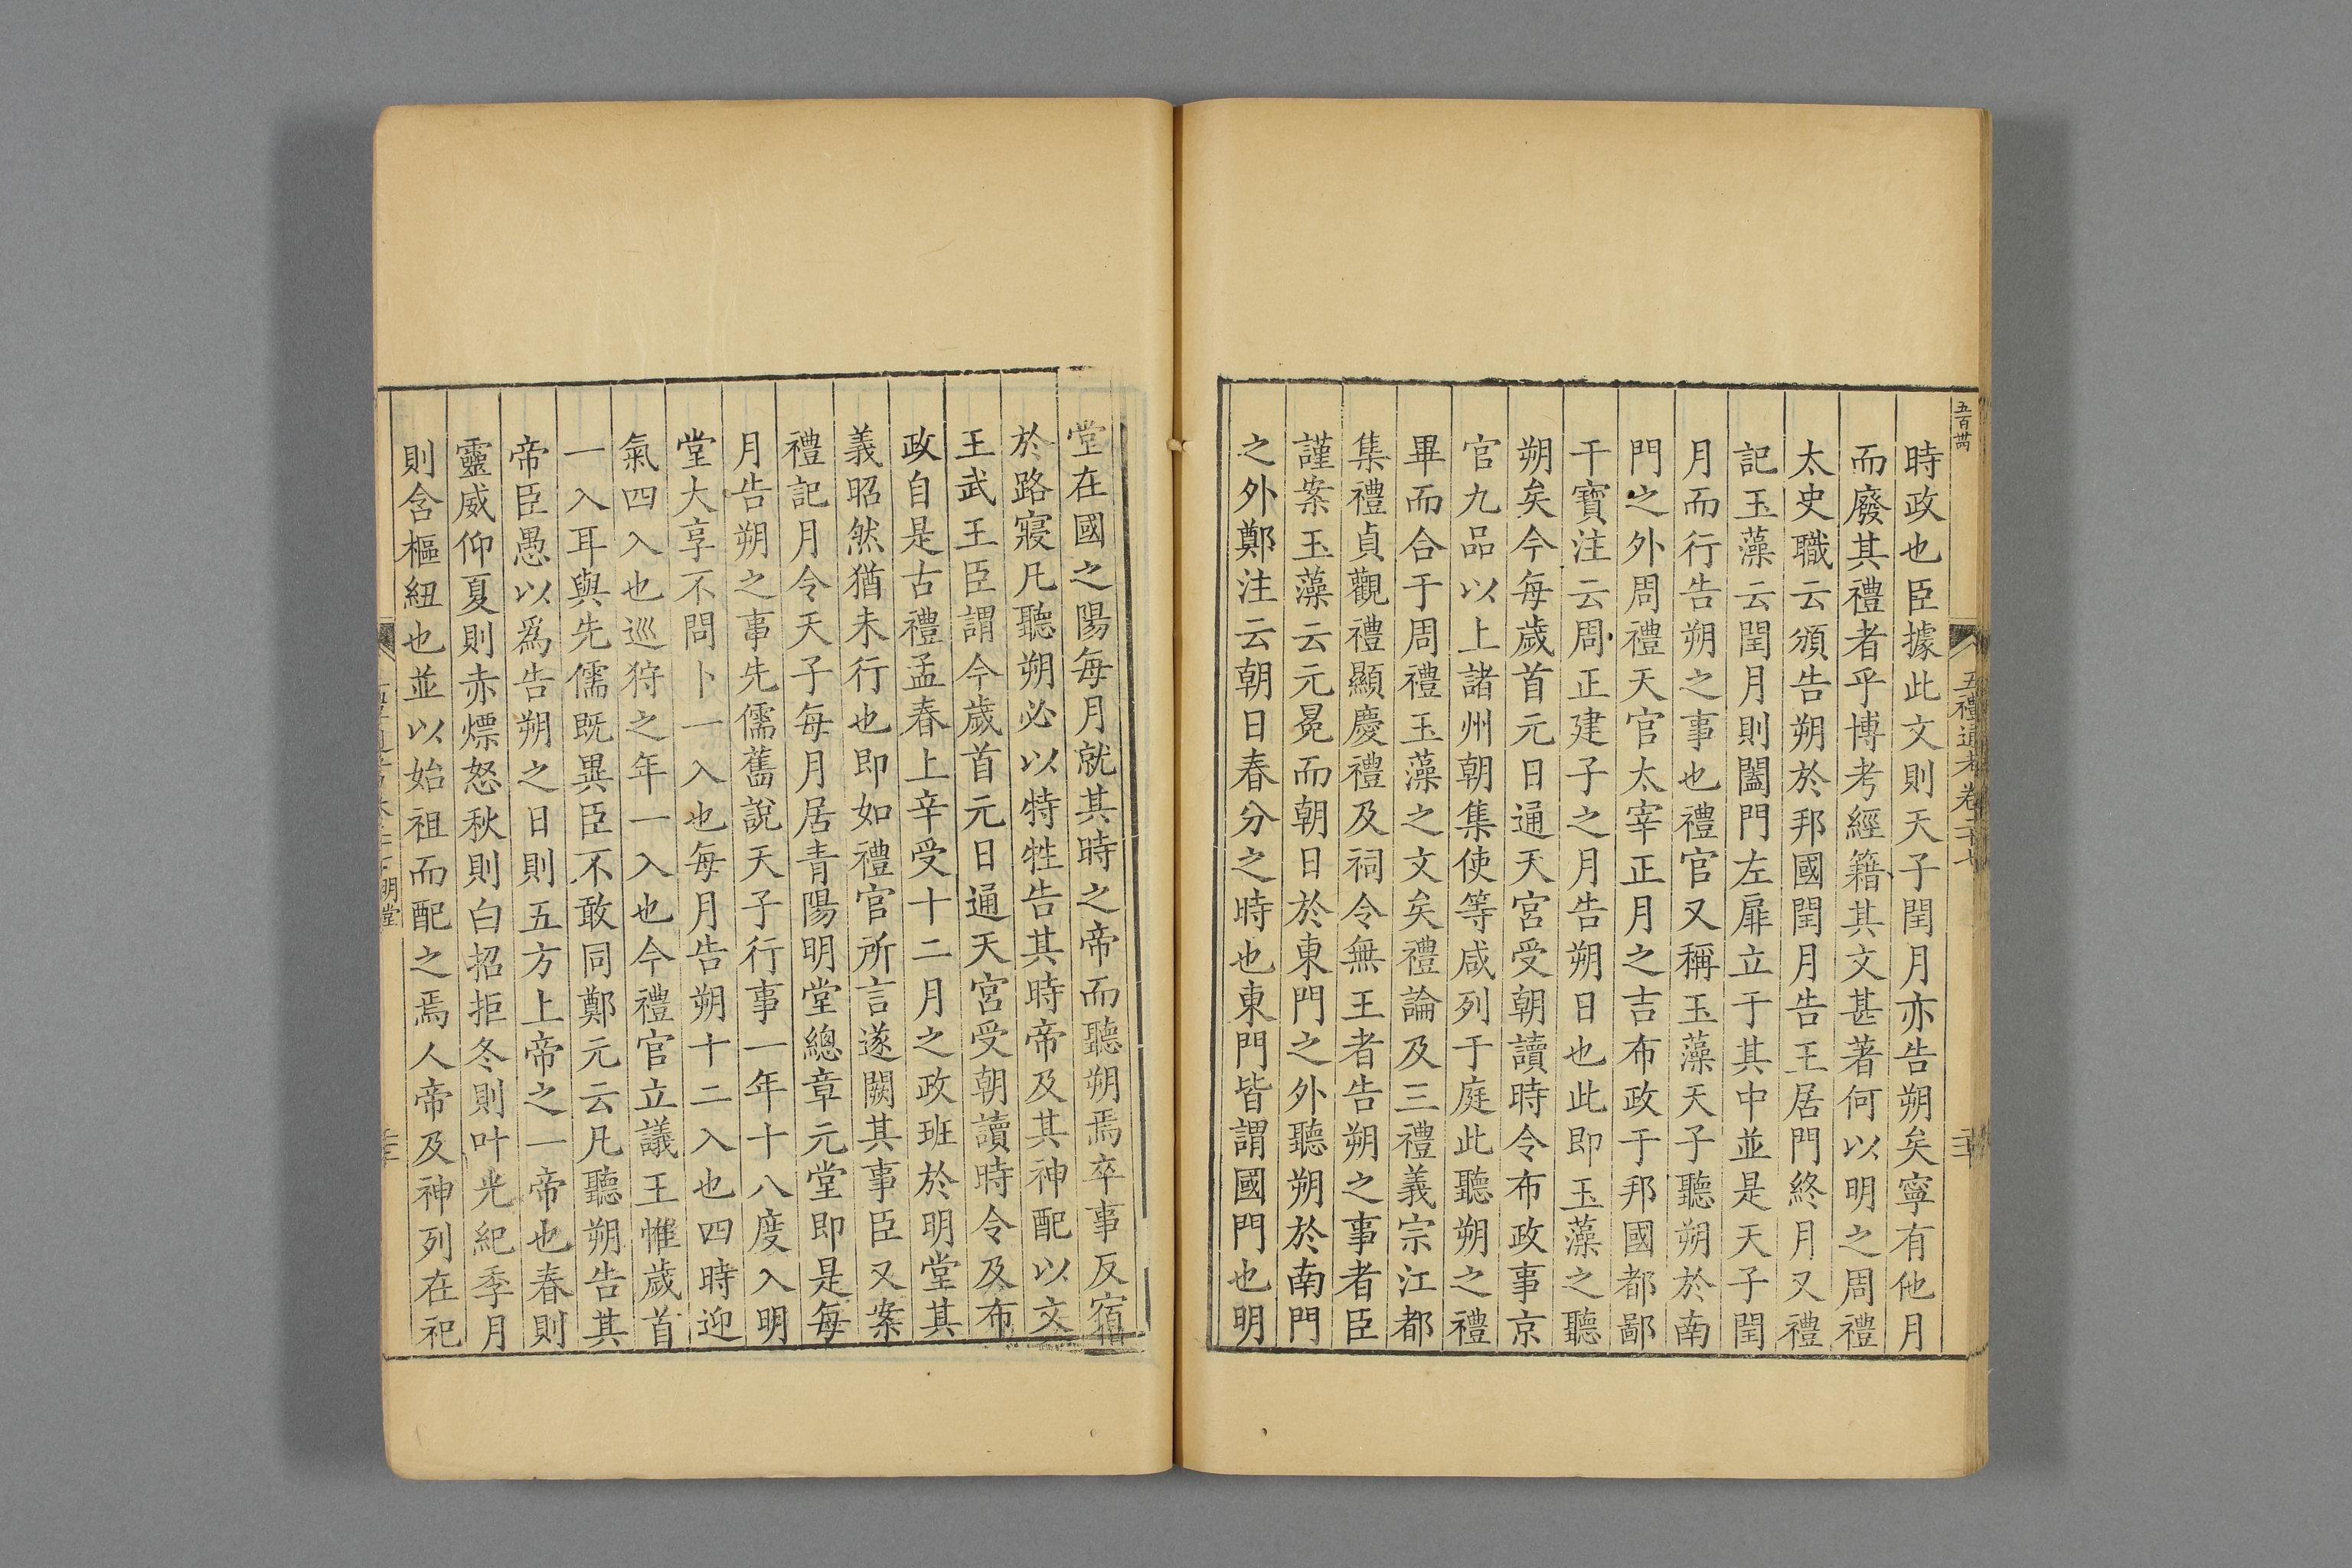 時政也臣據此文則天子閏月亦告朔矣寧有他月
而廢其禮者乎博考經籍其文甚著何以明之周禮
太史職云頒告朔於邦國閏月告王居門終月又禮
記玉藻云閏月則闔門左扉立于其中並是天子閏
月而行告朔之事也禮官又稱玉藻天子聽朔於南
門之外周禮天官太宰正月之吉布政于邦國都鄙
干寶注云周正建子之月告朔日也此即玉藻之聽
朔矣今每歲首元日通天宮受朝讀時令布政事京
官九品以上諸州朝集使等咸列于庭此聽朔之禮
畢而合于周禮玉藻之文矣禮論及三禮義宗江都
集禮貞觀禮顯慶禮及祠令無王者告朔之事者臣
謹案玉藻云元冕而朝日於東門之外聽朔於南門
之外鄭注云朝日春分之時也東門皆謂國門也明
堂在國之陽每月就其時之帝而聽朔焉卒事反宿
於路寢凡聽朔必以特牲告其時帝及其神配以文
王武王臣謂今歲首元日通天宮受朝讀時令及布
政自是古禮孟春上辛受十二月之政班於明堂其
義昭然猶未行也即如禮官所言遂闕其事臣又案
禮記月令天子每月居青陽明堂總章元堂即是每
月告朔之事先儒舊說天子行事一年十八度入明
堂大享不問卜一入也每月告朔十二入也四時迎
氣四入也巡狩之年一入也今禮官立議王惟歲首
一入耳與先儒既異臣不敢同鄭元云凡聽朔告其
帝臣愚以爲告朔之日則五方上帝之一帝也春則
靈威仰夏則赤熛怒秋則白招拒冬則叶光紀季月
則含樞紐也並以始祖而配之焉人帝及神列在祀
五禮通考卷二十七
明堂